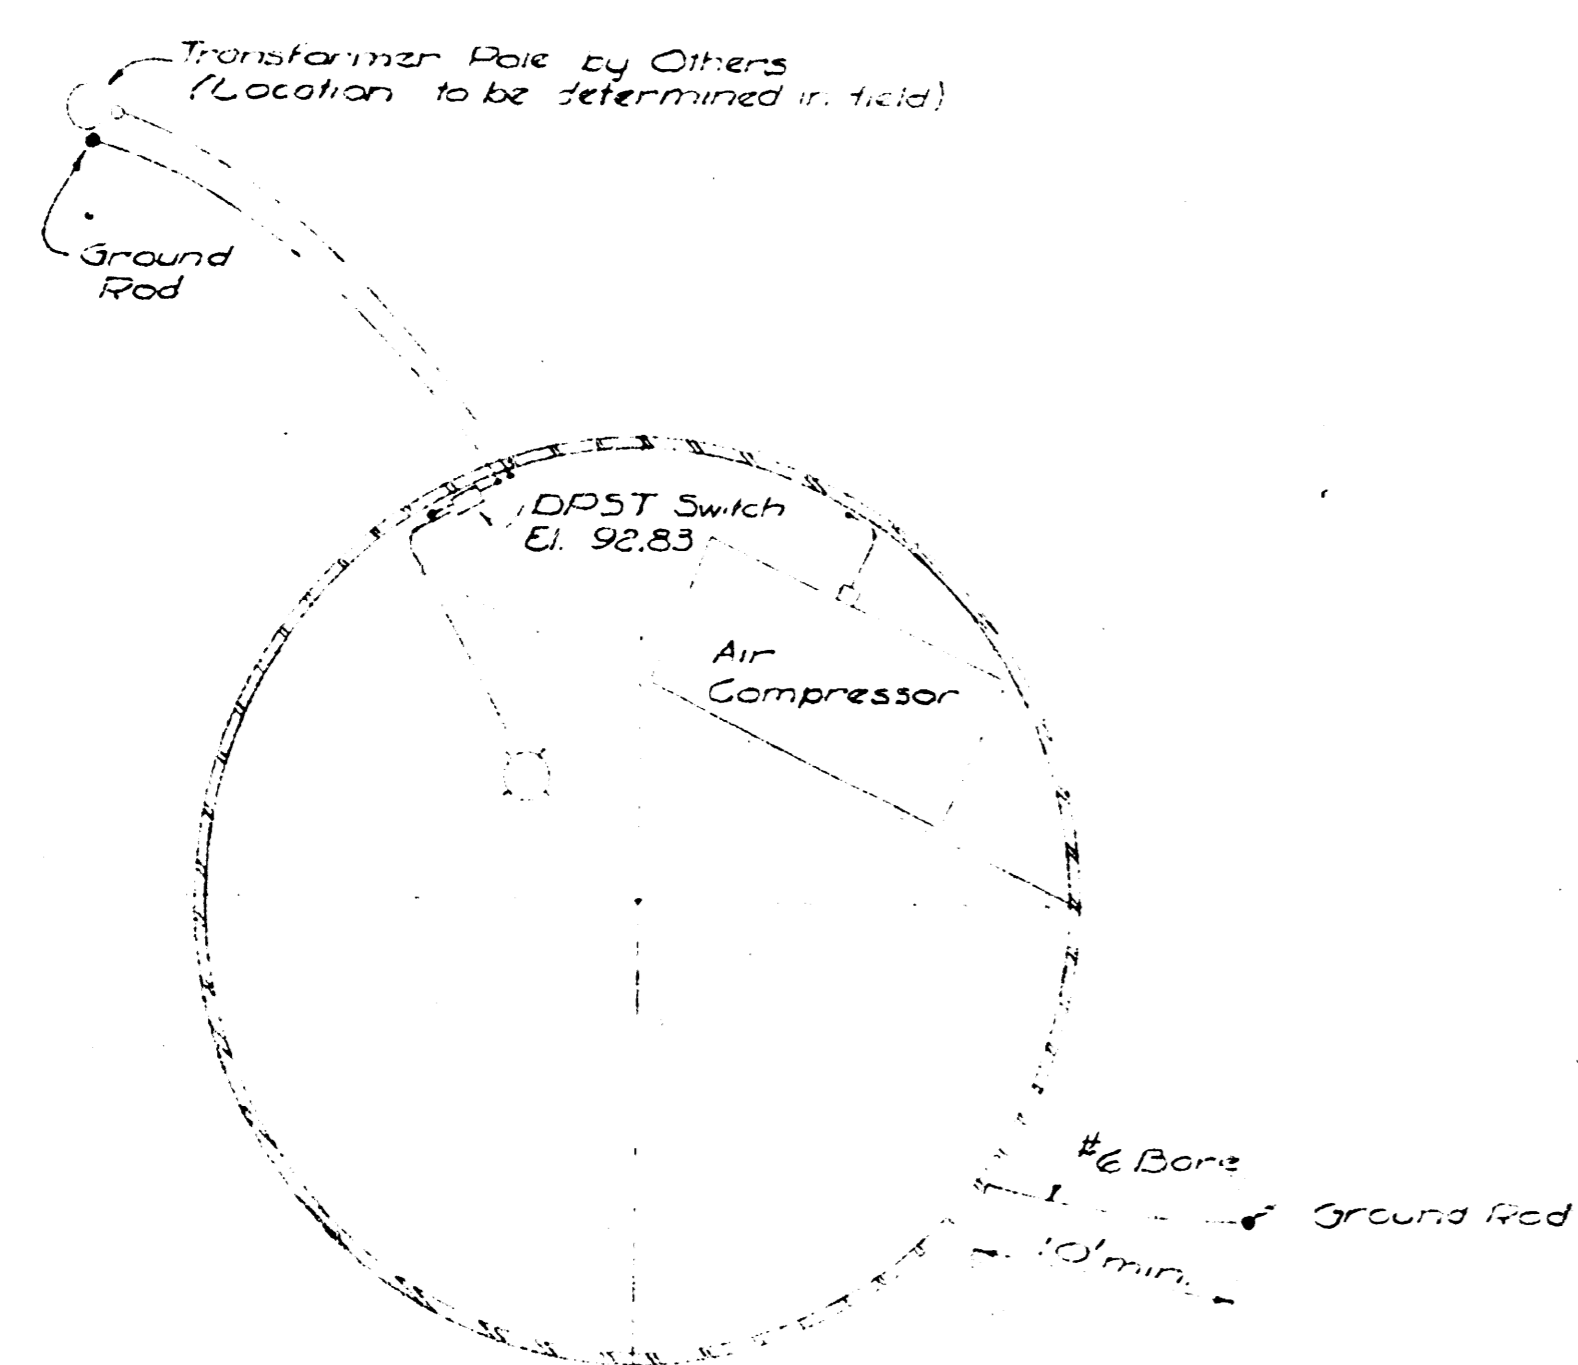 Transformer Pole by Others
(Location to be determined in field)
Ground
Rod
DPST Switch
El. 92.83
Air
Compressor
#6 Bare
Ground Rod
10' min.